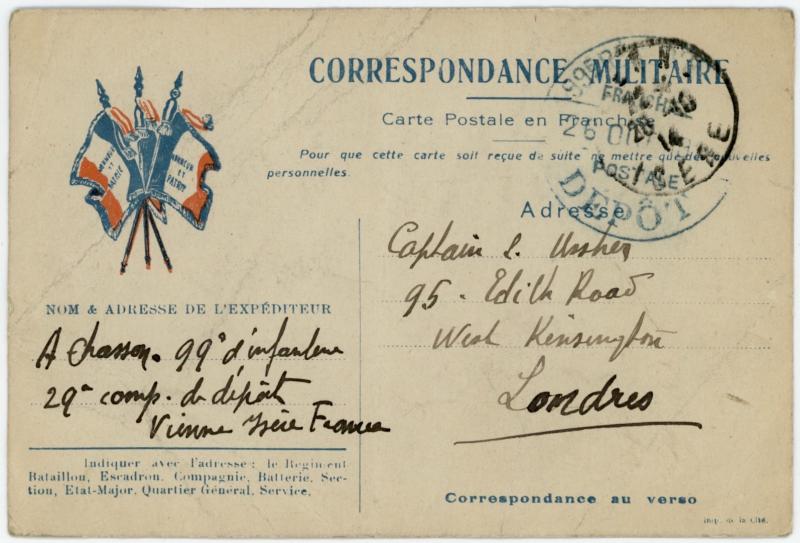 CORRESPONDANCE MILITAIRE
Carte Postale en Franchise
Pour que cette carte soit reçue de suite ne mettre que des nouvelles
personnelles.
HONNEUR ET PATRIE
HONNEUR ET PATRIE
FRANCHISE
POSTALE
DEPÔT
ISERE
Adresse
Captain L. Ussher
95 - Edith Road
West Kensington
Londres
NOM & ADRESSE DE L'EXPÉDITEUR
A Chasson. 99e d'infanterie
29e comp. de dépôt
Vienne Isère France
Indiquer avec l'adresse : le Régiment
Bataillon, Escadron, Compagnie, Batterie, Sec-
tion, Etat-Major, Quartier Général, Service.
Correspondance au verso
Imp. de la Cité.